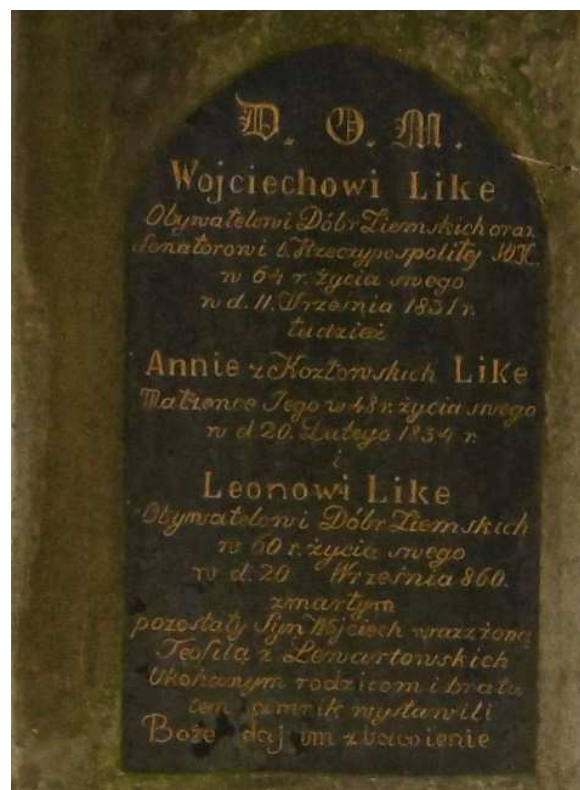 D. O. M.
Wojciechowi Like
Obywatelowi Dóbr Ziemskich oraz
Senatorowi b. Rzeczypospolitej WK.
w 64 r. życia swego
w d. 11. Września 1831 r.
tudzież
Annie z Kozłowskich Like
Małżonce Jego w 48 r. życia swego
w d 20. Lutego 1834 r.
i
Leonowi Like
Obywatelowi Dóbr Ziemskich
w 60 r. życia swego
w d. 20 Września 860.
zmarłym
pozostały Syn Wojciech wraz z żoną
Teofilą z Lewartowskich
Ukohanym rodzicom i bratu
ten pomnik wystawili
Boże daj im zbawienie